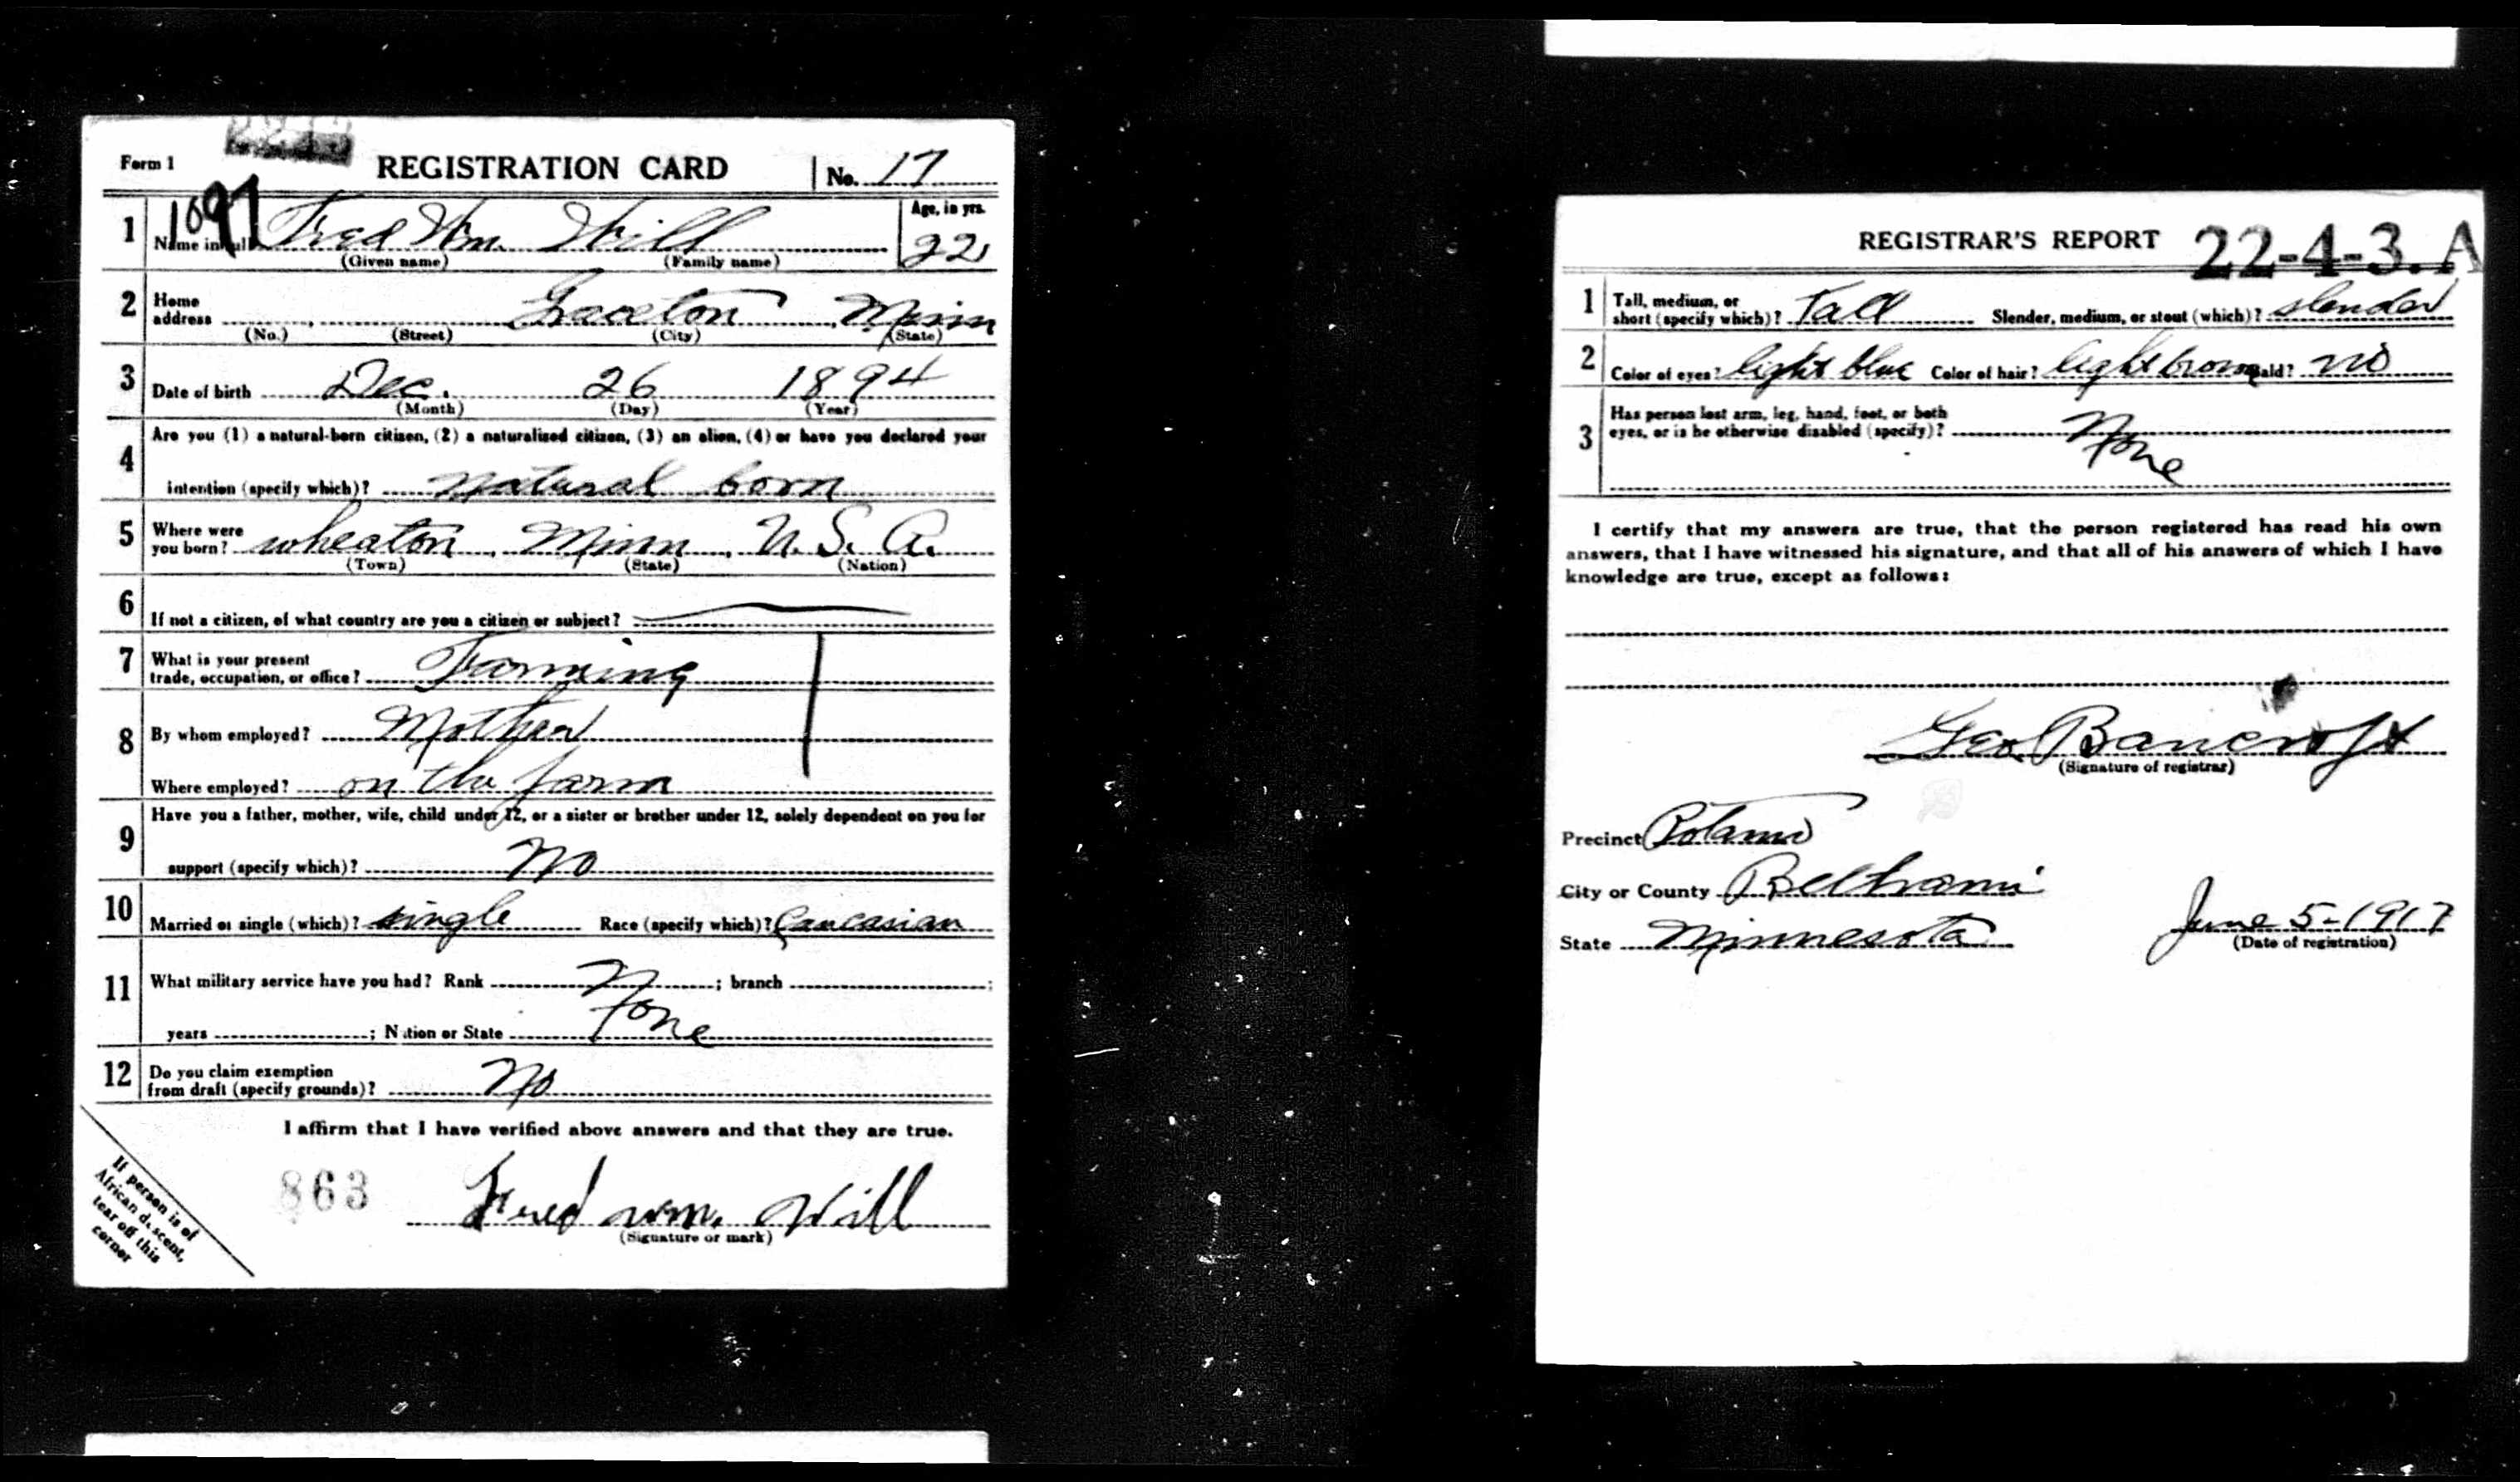 Form 1 REGISTRATION CARD No. 17
1097
1 Name in full Fred Wm. Will Age, in yrs. 22
(Given name) (Family name)
2 Home address Graceton, Minn
(No.) (Street) (City) (State)
3 Date of birth Dec. 26 1894
(Month) (Day) (Year)
4 Are you (1) a natural-born citizen, (2) a naturalized citizen, (3) an alien, (4) or have you declared your
intention (specify which)? natural born
5 Where were you born? Wheaton, Minn, U. S. A.
(Town) (State) (Nation)
6 If not a citizen, of what country are you a citizen or subject?
7 What is your present trade, occupation, or office? Farming
8 By whom employed? Mother
Where employed? on the farm
9 Have you a father, mother, wife, child under 12, or a sister or brother under 12, solely dependent on you for
support (specify which)? No
10 Married or single (which)? single Race (specify which)? Caucasian
11 What military service have you had? Rank None; branch ;
years ; Nation or State
12 Do you claim exemption from draft (specify grounds)? No
I affirm that I have verified above answers and that they are true.
863 Fred wm. Will
(Signature or mark)
If person is of
African descent,
tear off this
corner
REGISTRAR'S REPORT 22-4-3. A
1 Tall, medium, or short (specify which)? Tall Slender, medium, or stout (which)? slender
2 Color of eyes? light blue Color of hair? light brown Bald? No
3 Has person lost arm, leg, hand, foot, or both
eyes, or is he otherwise disabled (specify)? None
I certify that my answers are true, that the person registered has read his own
answers, that I have witnessed his signature, and that all of his answers of which I have
knowledge are true, except as follows:
Geo Bancroft
(Signature of registrar)
Precinct Potamo
City or County Beltrami
State Minnesota June 5-1917
(Date of registration)